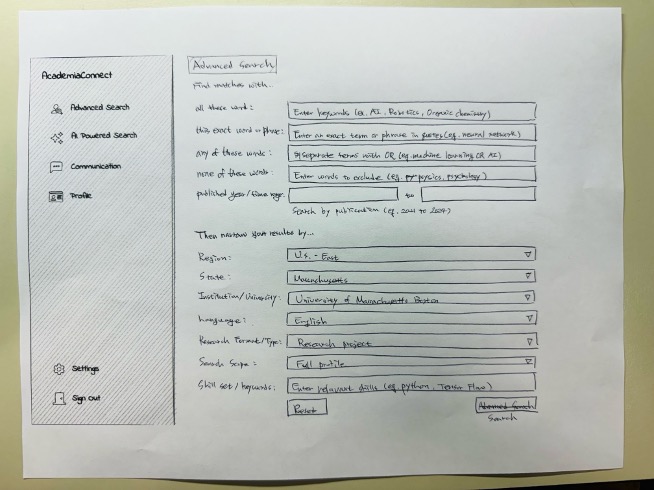 AcademiaConnect
Advanced Search
AI Powered Search
Communication
Profile
Settings
Sign Out
Advanced Search
Find matches with...
all these word:
Enter keywords (e.g. AI, Robotics, Organic chemistry)
this exact word or phrase:
Enter an exact term or phrase in quotes (e.g. neural network)
any of these words:
separate terms with OR (e.g. machine learning OR AI)
none of these words:
Enter words to exclude (e.g. pysics, psychology)
published year/time range:
to
Search by publication (e.g. 2021 to 2024)
Then narrow your results by...
Region:
U.S. - East
State:
Massachusetts
Institution/University:
University of Massachusetts Boston
Language:
English
Research Format/Type:
Research project
Search Scope:
Full profile
Skill set / keywords:
Enter relevant skills (e.g. python, Tensor Flow)
Reset
Advanced Search
Search